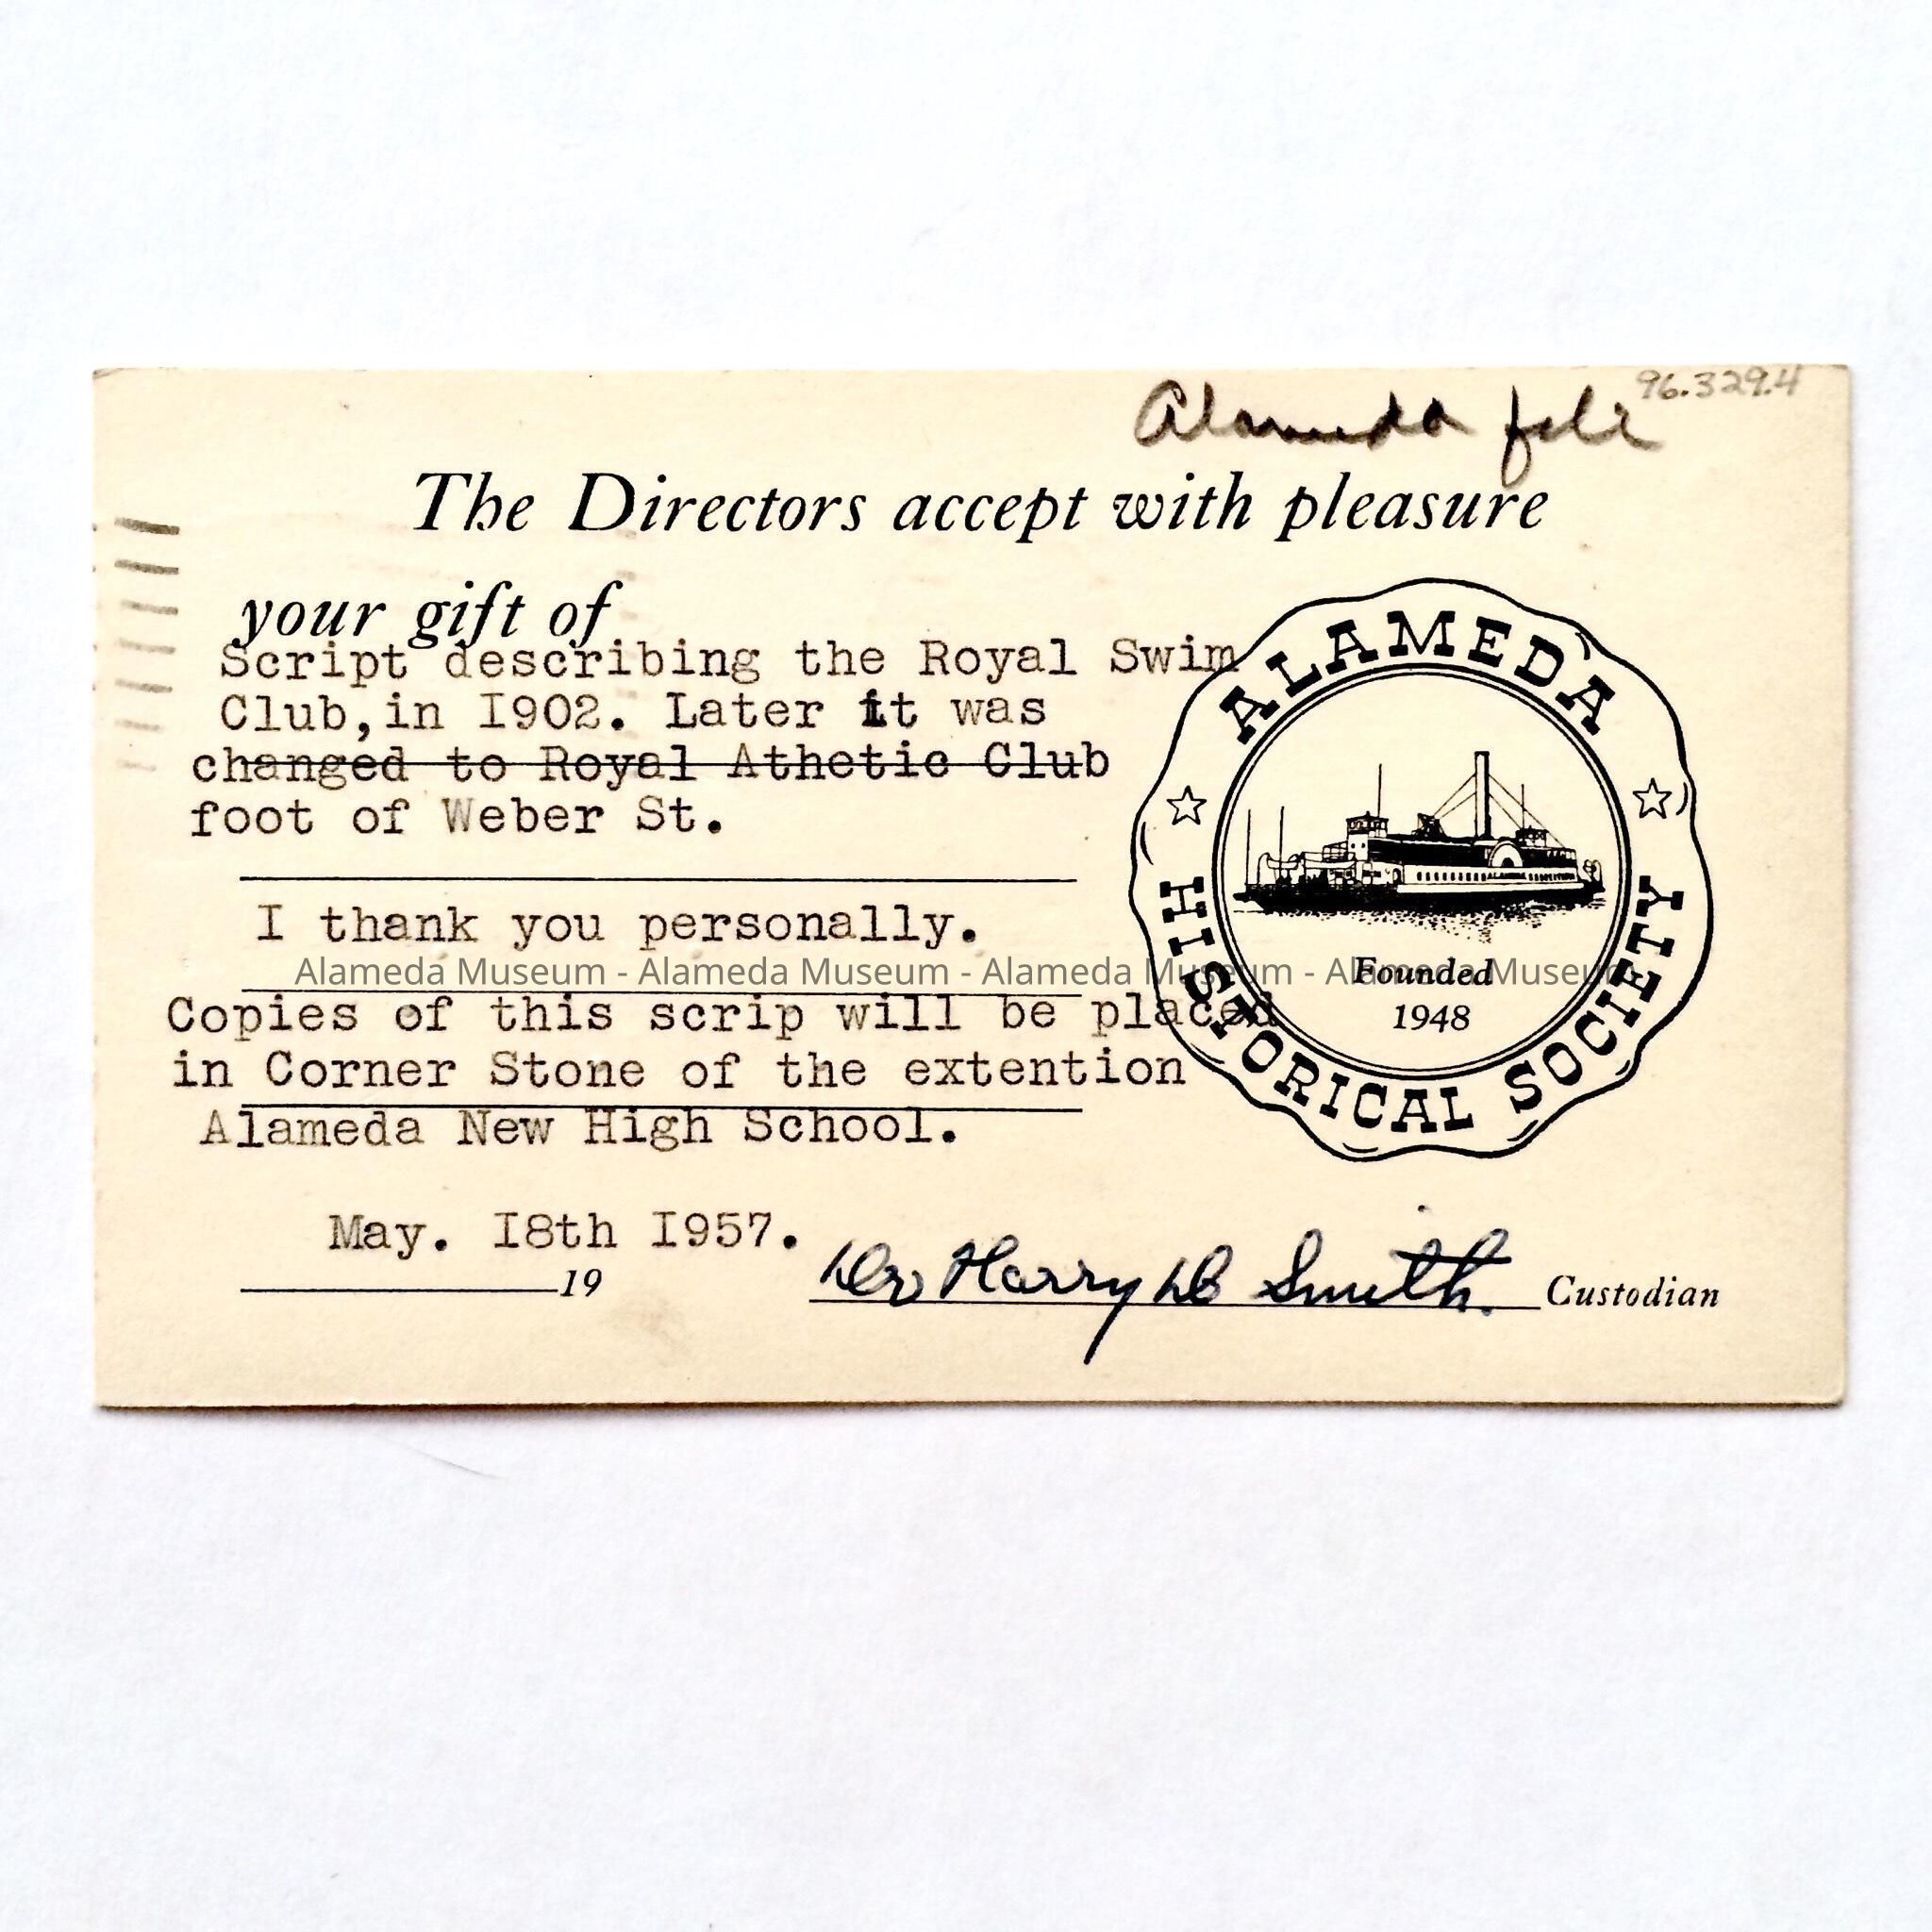 96.329.4
Alameda file
The Directors accept with pleasure
your gift of
Script describing the Royal Swim
Club,in I902. Later it was
changed to Royal Athetic Club
foot of Weber St.
I thank you personally.
Copies of this scrip will be placed
in Corner Stone of the extention
Alameda New High School.
May. I8th I957.
19
Dr Harry D Smith. Custodian
ALAMEDA
HISTORICAL SOCIETY
Founded
1948
Alameda Museum - Alameda Museum - Alameda Museum - Alameda Museum